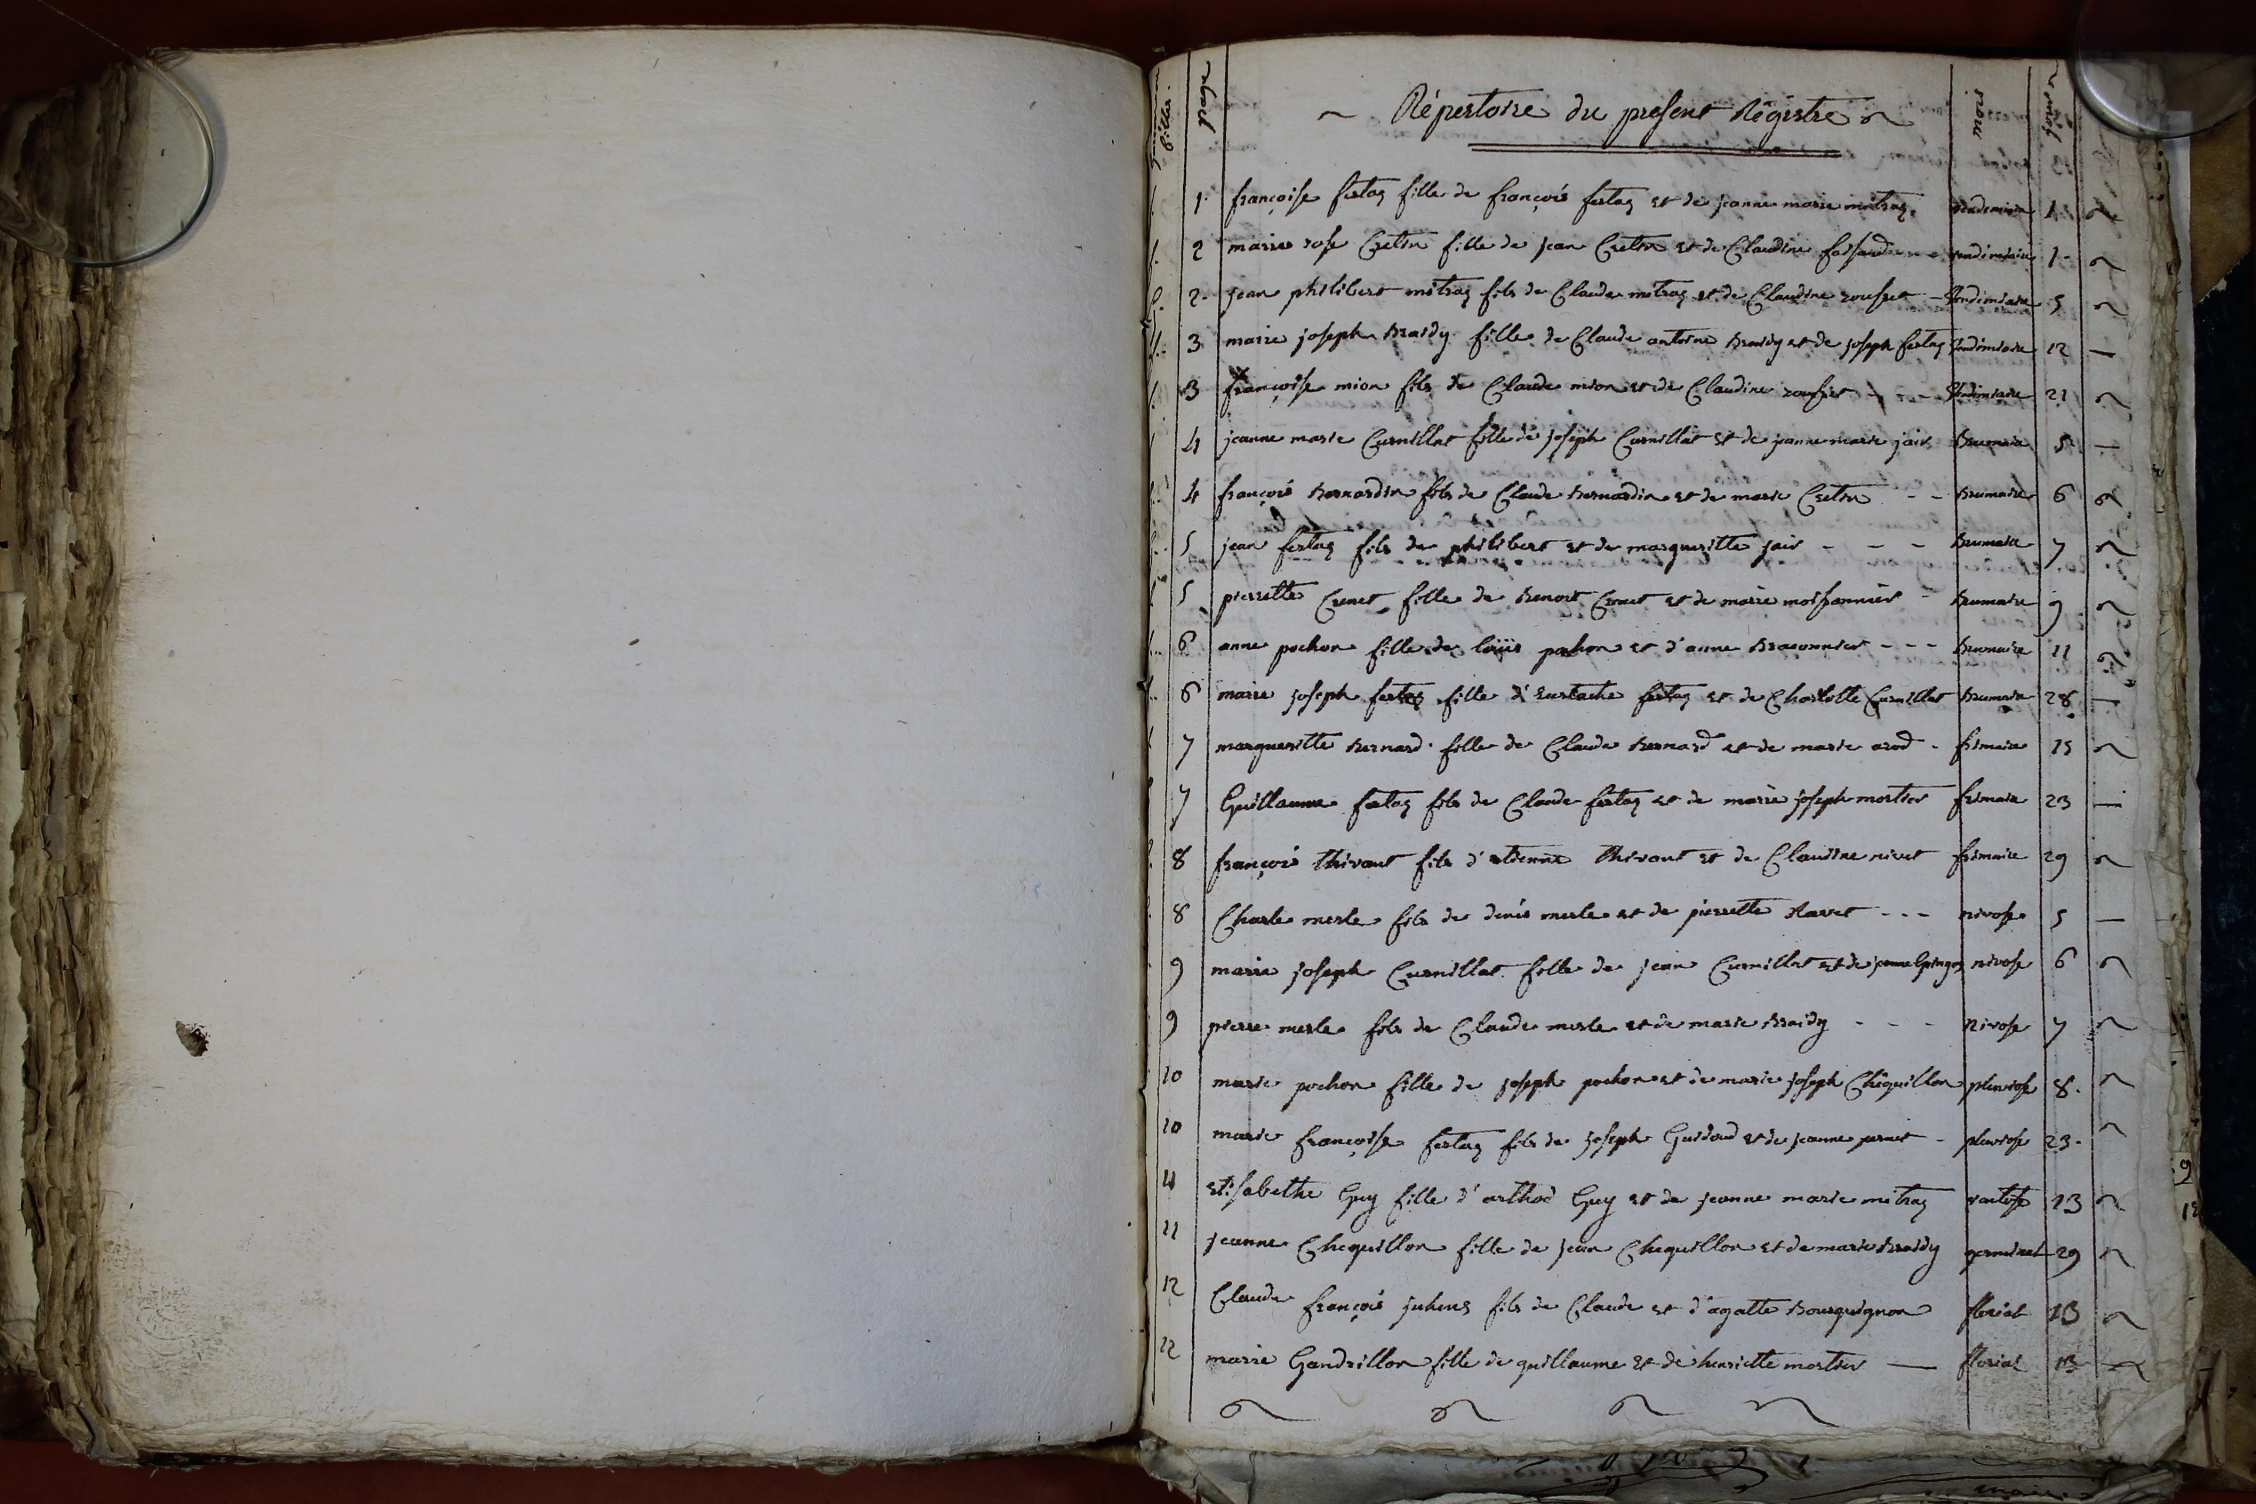 filles page ~ Répertoire du present Régistre ~ mois jours
1. françoise fertaz fille de françois fertaz et de jeanne marie mitraz. vendemiaire 1
2 marie rose Cretin fille de jean Cretin et de Claudine vendimiaire 1.
2. jean philibert mitraz fils de Claude mitraz et de Claudine rousset - vendimiaire 5
3 marie joseph braidy fille de Claude antoine braidy et de joseph fertaz vendimiaire 12
3 françoise mion fils de Claude mion et de Claudine rousset - - vendimiaire 21
4 jeanne marie Curnillat fille de joseph Curnillat et de jeanne marie jair brumaire 5
4 françois bernardin fils de Claude bernardin et de marie Cretin - - brumaire 6
5 jean fertaz fils de philibert et de margueritte jair - - - brumaire 7
5 pierrette Crenet fille de benoit Crenet et de marie moissonnier - brumaire 9
6 anne pochon fille de loüis pochon et d'anne braconnier - - - brumaire 11
6 marie joseph fertaz fille d'eustache fertaz et de Charlotte Curnillat brumaire 28
7 margueritte bernard fille de Claude bernard et de marie arod - frimaire 15
7 Guillaume fertaz fils de Claude fertaz et de marie joseph mortier frimaire 23
8 françois thivant fils d'etienne thivant et de Claudine nivet frimaire 29
8 Charle merle fils de denis merle et de pierrette Ravet - - - nivose 5
9 marie joseph Curnillat fille de jean Curnillat et de jeanne nivose 6
9 pierre merle fils de Claude merle et de marie braidy - - - nivose 7
10 marie pochon fille de joseph pochon et de marie joseph Chêquillon pluviose 8.
10 marie françoise fertaz fils de joseph Guidoud et de jeanne - pluviose 23.
11 Elisabethe Guy fille d'arthod Guy et de jeanne marie mitraz vantose 13
11 jeanne Chequillon fille de jean Chequillon et de marie braidy germinal 29
12 Claude françois fils de Claude et d'agatte bourguignon florial 13
12 marie Gandrillon fille de guillaume et de henriette mortier — florial 13